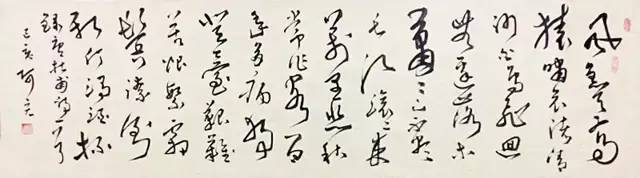 風急天高
猿嘯哀渚清
沙白鳥飛迴
無邊落木
蕭々下不盡
長江滾々來
萬里悲秋
常作客百
年多病獨
登臺艱難
苦恨繁霜
鬢潦倒
新停濁酒杯
錄唐杜甫詩一首
己亥